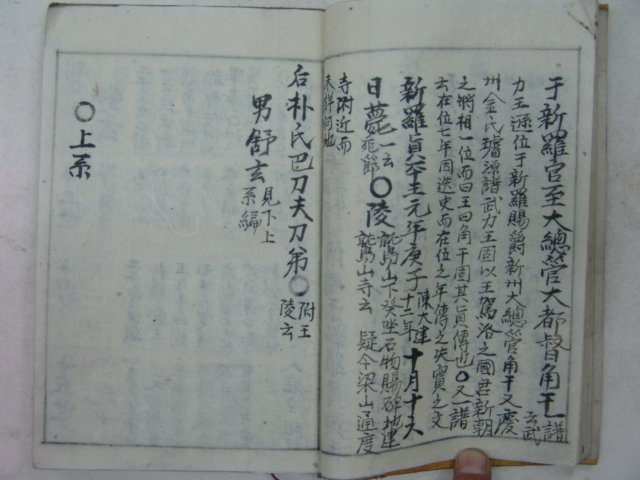 于新羅官至大總管大都督角干譜云武
力王遜位于新羅賜爵新州大總管角干又慶
州金氏璿源譜武力王固以王駕洛之國君新朝
之將相一位而曰王曰角干固其員傳也〇又一譜
云在位七年因逸史而在位之年傳之失實之文
新羅真六主元年庚子陳大建十二年十月十六
日薨一云死節〇陵鷲山下癸坐石物賜碑地建鷲山寺云疑今梁山通度
寺附近而未詳何地
后朴氏巴刀夫刀弟〇附王陵云
男舒玄見下上系編
〇上系